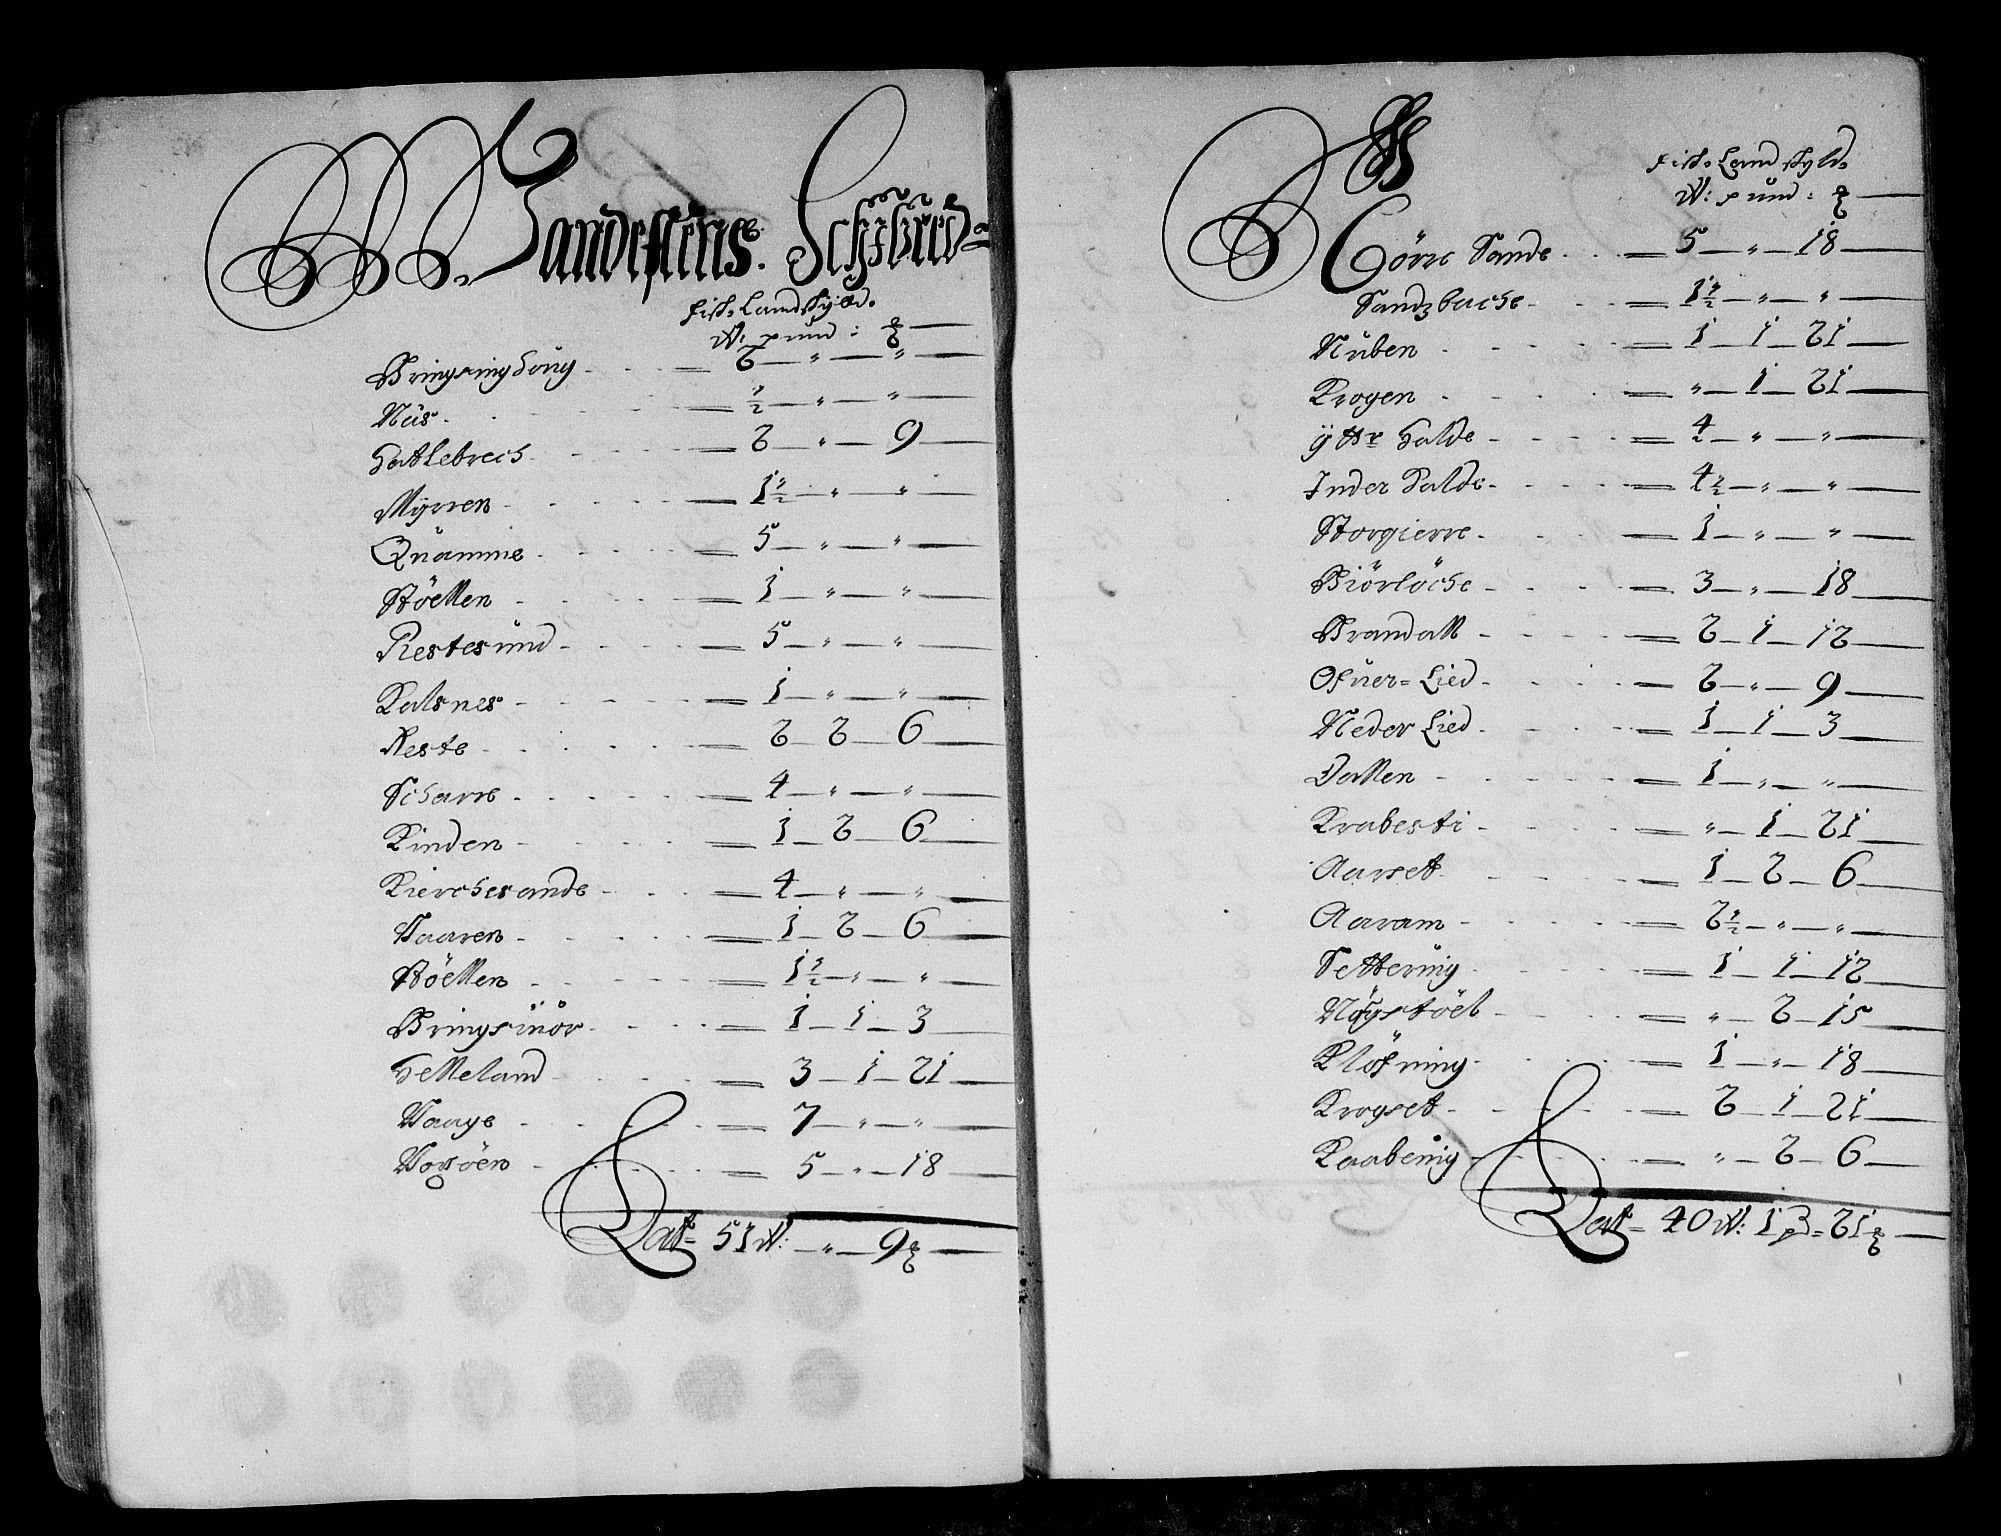 Sandeslens. Schibred
fisk Landskyld.
W: pund: ℔
Bringsinghoug = 2 — " — "
Nus = ½ — " — "
Hatlebrech = 2 — " — 9
Myrren = 1½ — " — "
Quamme = 5 — " — "
Stöellen = 1 — " — "
Restesund = 5 — " — "
Kalsnes = 1 — " — "
Reste = 2 — 2 — 6
Scharre = 4 — " — "
Kinden = 1 — 2 — 6
Kierchesande = 4 — " — "
Vaaren = 1 — 2 — 6
Stöellen = 1½ — " — "
Bringsinör = 1 — 1 — 3
Helleland = 3 — 1 — 21
Vaage = 7 — " — "
Voxöen = 5 — " — 18
Lat= 51 W: — " — 9 ℔
fisk Landskyld
W: pund: ℔
Görre Sande = 5 — " — 18
Sandzbache = 1½ — " — "
Nuben = 1 — 1 — 21
Krogen = " — 1 — 21
ÿtter Halde = 4½ — " — "
Inder Halde = 4½ — " — "
Storgierre = 1 — " — "
Biörlöche = 3 — " — 18
Brandall = 2 — 1 — 12
Ofuer= Lied = 2 — " — 9
Neder Lied = 1 — 1 — 3
Dallen = 1 — " — "
Krabesti = " — 1 — 21
Aarset = 1 — 2 — 6
Aaram = 2½ — " — "
Settering = 1 — 1 — 12
Nöystöel = " — 2 — 15
Klöfning = 1 — " — 18
Krogset = 2 — 1 — 21
Raabenig = " — 2 — 6
Lat= 40 W: 1 p = 21 ℔